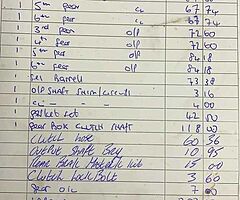 1 5th gear c/s 67 74
1 6th gear c/s 67 74
1 3rd gear o/p 72 60
1 4th gear o/p 72 60
1 5th gear o/p 84 18
1 6th gear o/p 84 18
1 Sel Barrell 73 38
1 o/p SHAFT SHIM/CIRCLIP 3 16
1 c/s 4 00
1 gasket set 42 50
gear BOX CLUTCH SHAFT 118 00
Clutch hose 60 36
Output Shaft Bey 10 95
kit 15 00
Clutch Lock Bolt 3 60
gear oil 7 00